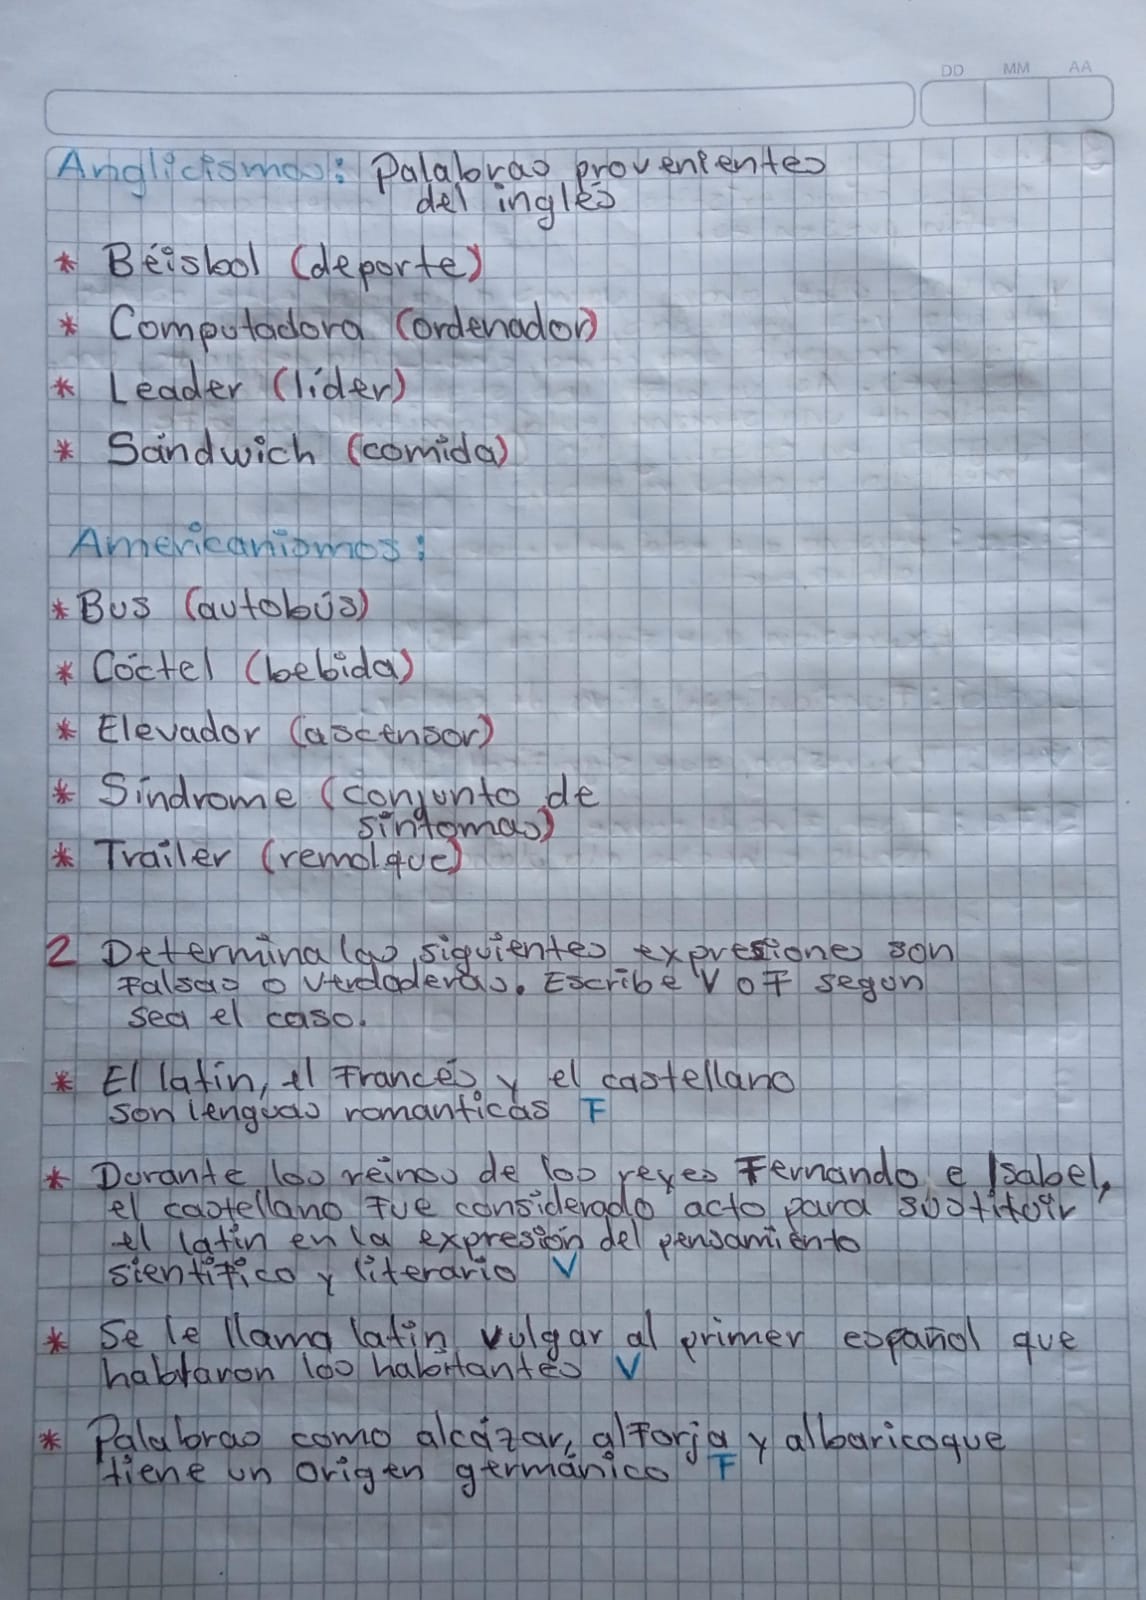 DD MM AA
Anglicismos: Palabras provenientes
del inglés
* Béisbol (deporte)
* Computadora (ordenador)
* Leader (líder)
* Sándwich (comida)
Americanismos:
* Bus (autobús)
* Cóctel (bebida)
* Elevador (ascensor)
* Síndrome (conjunto de
síntomas)
* Trailer (remolque)
2 Determina las siguientes expresiones son
Falsas o verdaderas. Escribe V o F segun
sea el caso.
* El latín, el Francés y el castellano
son lenguas romanticas F
* Durante los reinos de los reyes Fernando e Isabel,
el castellano fue considerado acto para sustituir
el latin en la expresión del pensamiento
sientifico y literario V
* Se le llama latín vulgar al primer español que
hablaron los habitantes V
* Palabras como alcázar, alforja y albaricoque
tiene un origen germánico F